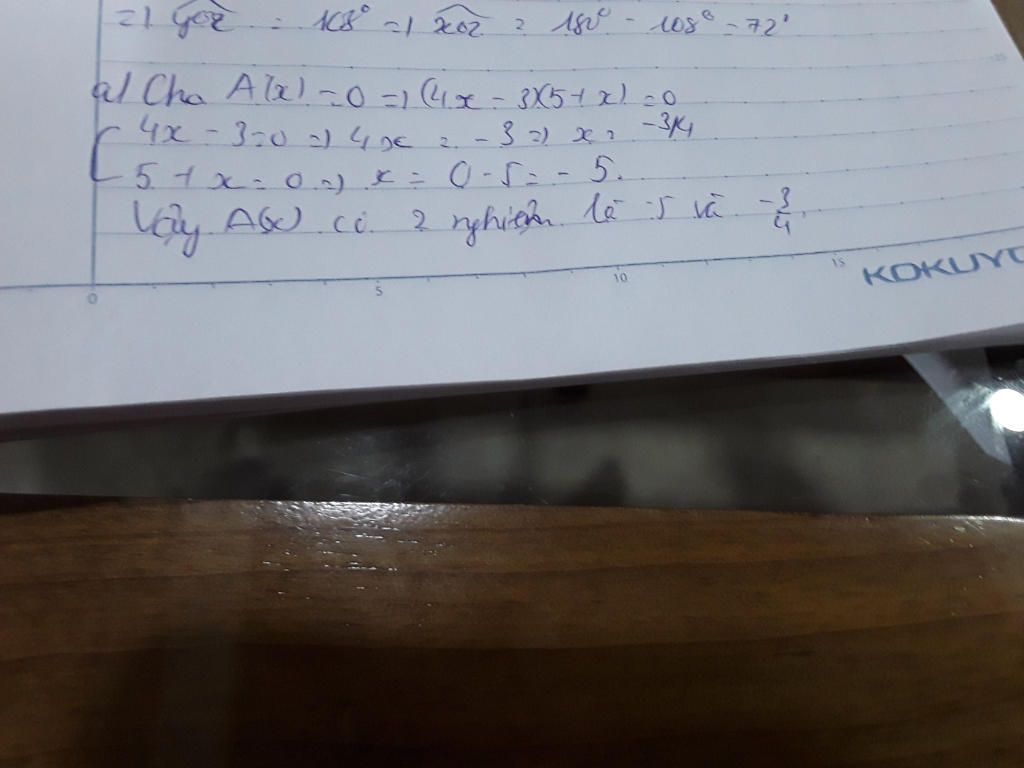 =) yOz = 108° =) xOz = 180° - 108° = 72°
a) Cho A(x) = 0 =) (4x - 3)(5 + x) = 0
4x - 3 = 0 =) 4x = - 3 =) x = -3/4
5 + x = 0 =) x = 0 - 5 = - 5.
Vậy A(x) có 2 nghiệm là -5 và -3/4.
0 5 10 15
KOKUYO